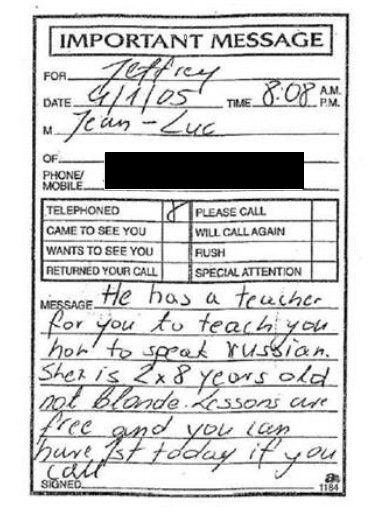 IMPORTANT MESSAGE
FOR Jeffrey
DATE 4/1/05 TIME 8:08 A.M.
P.M.
M Jean-Luc
OF
PHONE/
MOBILE
TELEPHONED PLEASE CALL
CAME TO SEE YOU WILL CALL AGAIN
WANTS TO SEE YOU RUSH
RETURNED YOUR CALL SPECIAL ATTENTION
MESSAGE He has a teacher
for you to teach you
how to speak russian.
She is 2x8 years old
not blonde. Lessons are
free and you can
have 1st today if you
call
SIGNED 1184